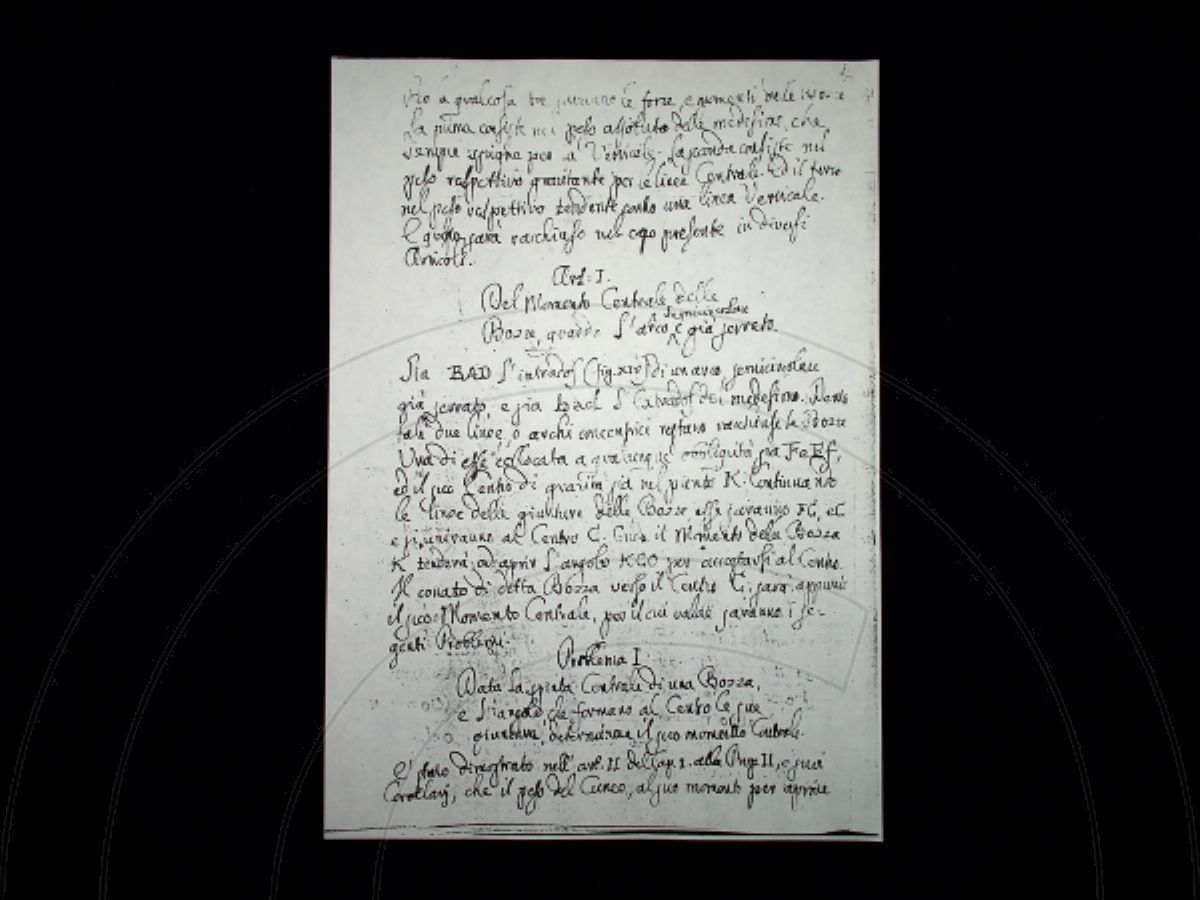 a qualcosa tre saranno le forze, e momenti delle
La prima consiste nel peso assoluto delle medesime, che
sempre spigne per la Verticale. La seconda consiste nel
peso respettivo gravitante per le linee Centrali. Ed il terzo
nel peso respettivo tendente sotto una linea Verticale.
E questo sarà racchiuso nel capo presente in diversi
Articoli.
Art. I.
Del Momento Centrale delle
Bozze, quando l'arco semicircolare è già serrato.
Sia BAD l'intrados (fig. XIV) di un arco semicircolare
già serrato, e sia bad l'Extrados del medesimo. Dentro
tali due linee, o archi concentrici restano racchiuse le Bozze
Una di esse collocata a qualunque obbliquità sia FeEf,
ed il suo Centro di gravità sia nel punto K. Continuando
le linee delle giunture delle Bozze esse saranno FC, eC
e si uniranno al Centro C. Giusa il Momento della Bozza
K tenderà ad aprir l'angolo KCO per accostarsi al Centro.
Il conato di detta Bozza verso il Centro C, sarà appunto
il suo Momento Centrale, per il cui valore saranno i se-
guenti Problemi.
Problema I
Data la spinta Centrale di una Bozza,
e l'angolo che formano al Centro le sue
giunture, determinare il suo momento Centrale.
E' stato dimostrato nell'art. II del Cap. I. alla Prop. II, e suoi
Corollarj, che il peso del Cuneo, al suo momento per aprire